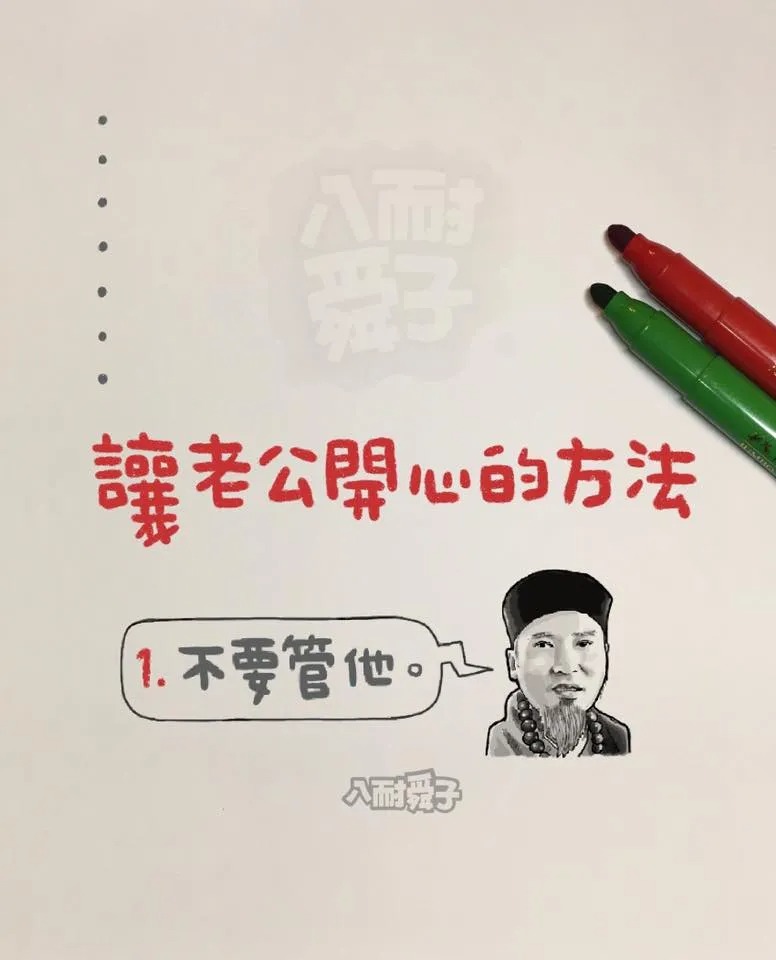 八耐
舜子
讓老公開心的方法
1. 不要管他。
八耐舜子